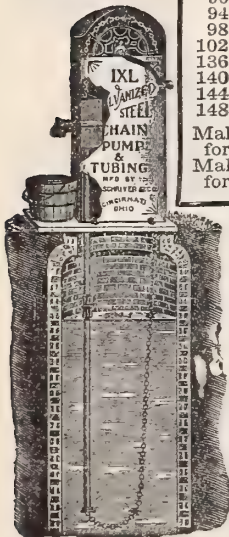 94
98
102
136
140
144
148
Mal
for
Mal
for
IXL
LVANIZED
STEEL
CHAIN
PUMP
&
TUBING
MFD BY THE
SCHRIVER & CO
CINCINNATI
OHIO